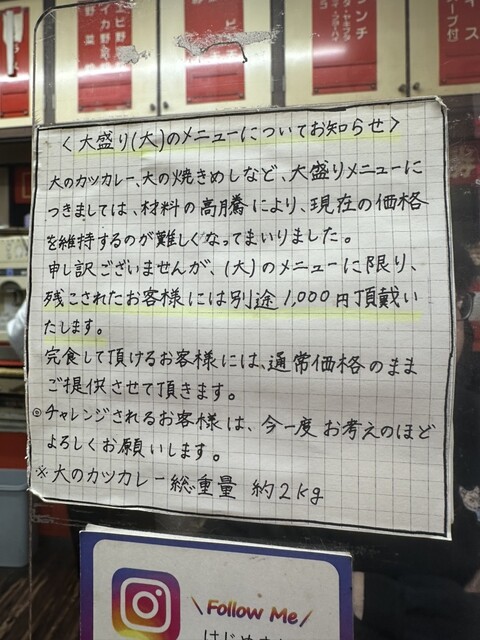 エビ野
イカ野
野菜
ランチ
イス
ープ付
〈大盛り(大)のメニューについてお知らせ〉
大のカツカレー、大の焼きめしなど、大盛りメニューに
つきましては、材料の高騰により、現在の価格
を維持するのが難しくなってまいりました。
申し訳ございませんが、(大)のメニューに限り、
残こされたお客様には別途1,000円頂戴い
たします。
完食して頂けるお客様には、通常価格のまま
ご提供させて頂きます。
◎チャレンジされるお客様は、今一度お考えのほど
よろしくお願いします。
※大のカツカレー総重量 約2kg
\Follow Me/